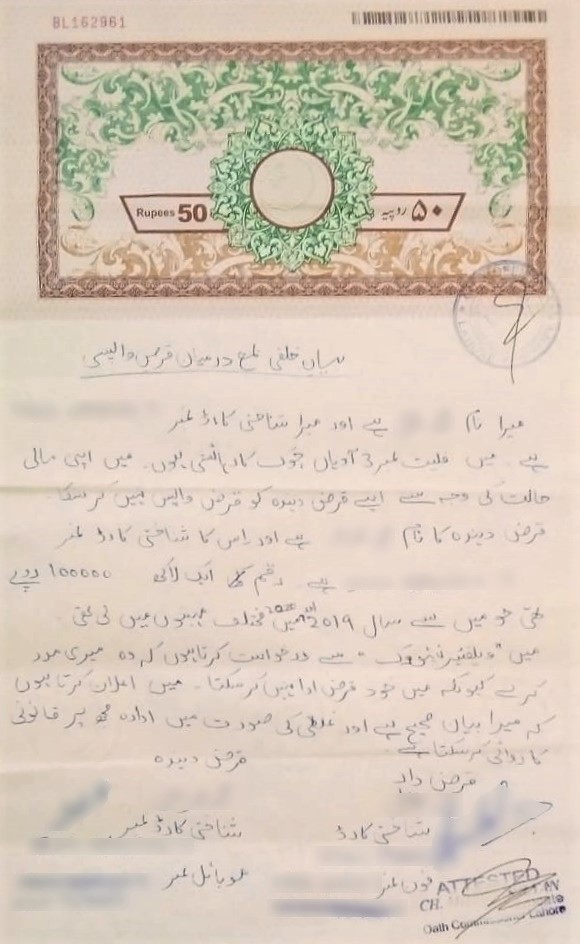 BL162961
Rupees 50
۵۰ روپیہ
بیان حلفی درمیان قرض واپسی
میرا نام ہے اور میرا شناختی کارڈ نمبر
ہے۔ میں فلیٹ نمبر 3 چوک کا رہائشی ہوں۔ میں اپنی مالی
حالت کی وجہ سے اپنے قرض دہندہ کو قرض واپس نہیں کر سکتا۔
قرض دہندہ کا نام ہے اور اس کا شناختی کارڈ نمبر
ہے۔ رقم ایک لاکھ 100000 روپے
تھی جو میں نے سال 2019 اور 2020 میں مختلف مہینوں میں لی تھی
میں سے درخواست کرتا ہوں کہ وہ میری مدد
کرے کیونکہ میں خود قرض ادا نہیں کر سکتا۔ میں اعلان کرتا ہوں
کہ میرا بیان صحیح ہے اور غلطی کی صورت میں ادارہ مجھ پر قانونی
کاروائی کر سکتا ہے۔
قرض دہندہ
قرض دار
شناختی کارڈ
شناختی کارڈ نمبر
فون نمبر
موبائل نمبر
ATTESTED
CH.
Oath Commissioner Lahore